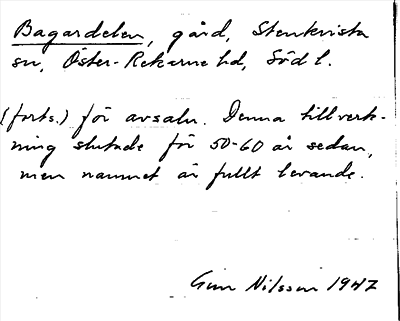 Bagardelen, gård, Stenkvista
sn, Öster-Rekarne hd, Södl.
(forts.) för avsalu. Denna tillverk-
ning slutade för 50-60 år sedan,
men namnet är fullt levande.
Gun Nilsson 1947